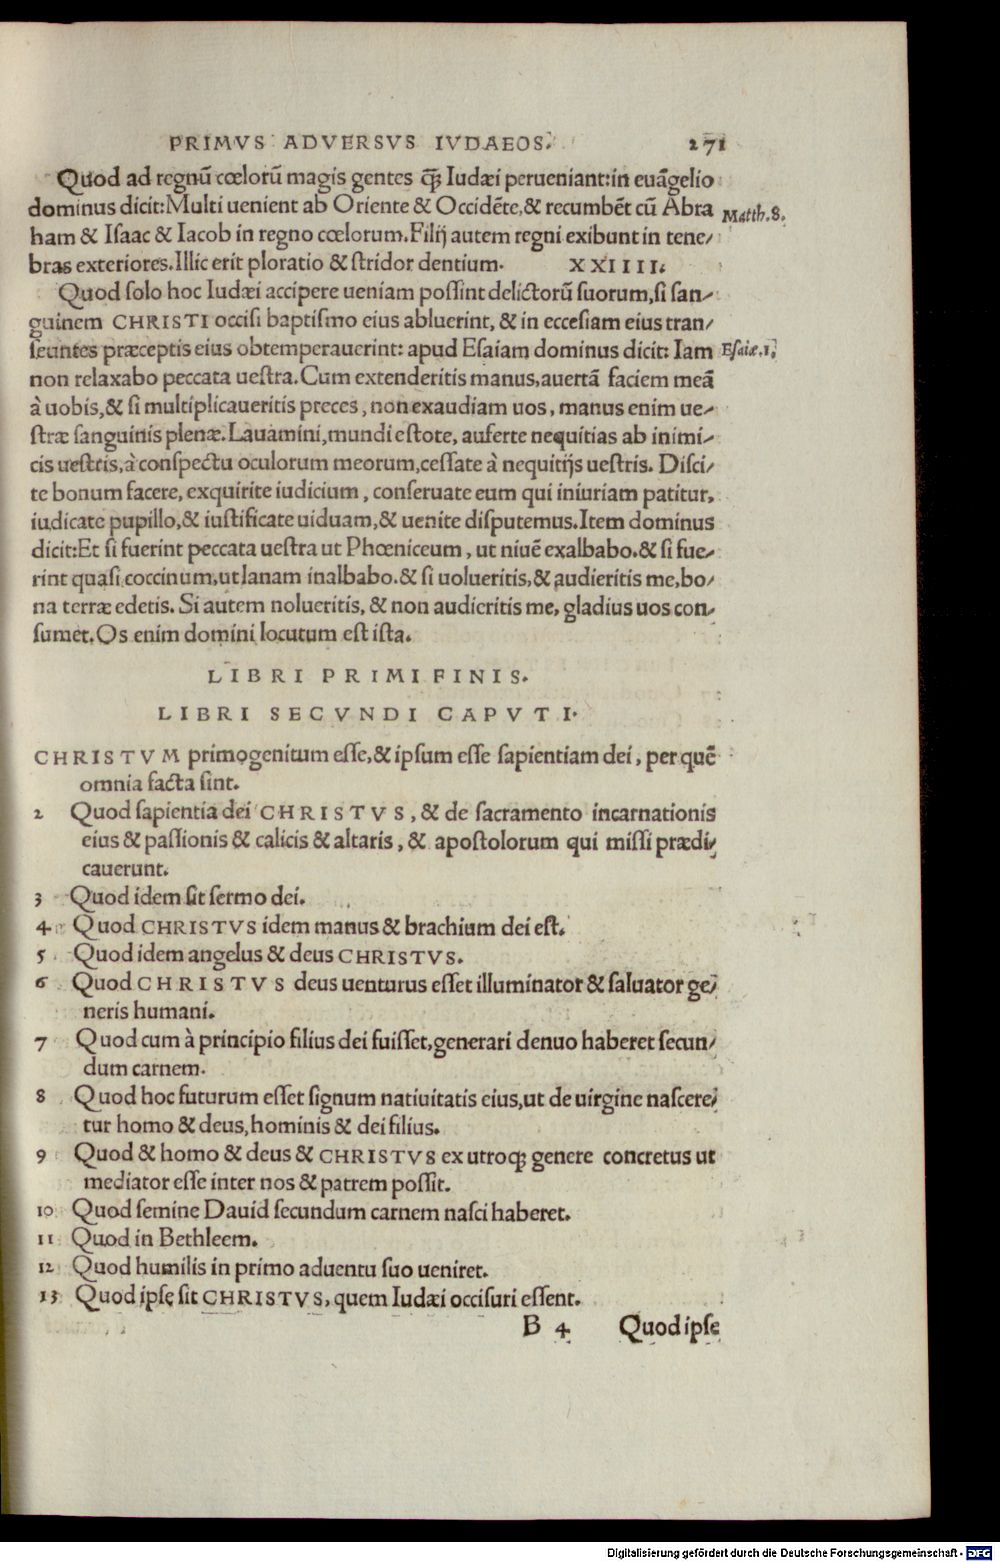 PRIMVS ADVERSVS IVDAEOS. 271
Quod ad regnũ cœlorũ magis gentes q̃ꝫ Iudæi perueniant: in euãgelio
dominus dicit: Multi uenient ab Oriente & Occidẽte, & recumbẽt cũ Abra Matth. 8.
ham & Iſaac & Iacob in regno cœlorum. Filij autem regni exibunt in tene⸗
bras exteriores. Illic erit ploratio & ſtridor dentium. XXIIII.
Quod ſolo hoc Iudæi accipere ueniam poſſint delictorũ ſuorum, ſi ſan⸗
guinem CHRISTI occiſi baptiſmo eius abluerint, & in eccеſiam eius tran⸗
ſeuntes præceptis eius obtemperauerint: apud Eſaiam dominus dicit: Iam Eſaiæ. 1.
non relaxabo peccata ueſtra. Cum extenderitis manus, auertã faciem meã
à uobis, & ſi multiplicaueritis preces, non exaudiam uos, manus enim ue⸗
ſtræ ſanguinis plenæ. Lauamini, mundi eſtote, auferte nequitias ab inimi⸗
cis ueſtris, à conſpectu oculorum meorum, ceſſate à nequitijs ueſtris. Diſci⸗
te bonum facere, exquirite iudicium, conſeruate eum qui iniuriam patitur,
iudicate pupillo, & iuſtificate uiduam, & uenite diſputemus. Item dominus
dicit: Et ſi fuerint peccata ueſtra ut Phœniceum, ut niuẽ exalbabo. & ſi fue⸗
rint quaſi coccinum, ut lanam inalbabo. & ſi uolueritis, & audieritis me, bo⸗
na terræ edetis. Si autem nolueritis, & non audieritis me, gladius uos con⸗
ſumet. Os enim domini locutum eſt iſta.
LIBRI PRIMI FINIS.
LIBRI SECVNDI CAPVT I.
CHRISTVM primogenitum eſſe, & ipſum eſſe ſapientiam dei, per quẽ
omnia facta ſint.
2 Quod ſapientia dei CHRISTVS, & de ſacramento incarnationis
eius & paſſionis & calicis & altaris, & apoſtolorum qui miſſi prædi⸗
cauerunt.
3 Quod idem ſit ſermo dei.
4 Quod CHRISTVS idem manus & brachium dei eſt.
5 Quod idem angelus & deus CHRISTVS.
6 Quod CHRISTVS deus uenturus eſſet illuminator & ſaluator ge⸗
neris humani.
7 Quod cum à principio filius dei fuiſſet, generari denuo haberet ſecun⸗
dum carnem.
8 Quod hoc futurum eſſet ſignum natiuitatis eius, ut de uirgine naſcere⸗
tur homo & deus, hominis & dei filius.
9 Quod & homo & deus & CHRISTVS ex utroqꝫ genere concretus ut
mediator eſſe inter nos & patrem poſſit.
10 Quod ſemine Dauid ſecundum carnem naſci haberet.
11 Quod in Bethleem.
12 Quod humilis in primo aduentu ſuo ueniret.
13 Quod ipſe ſit CHRISTVS, quem Iudæi occiſuri eſſent.
B 4 Quod ipſe
Digitalisierung gefördert durch die Deutsche Forschungsgemeinschaft - DFG